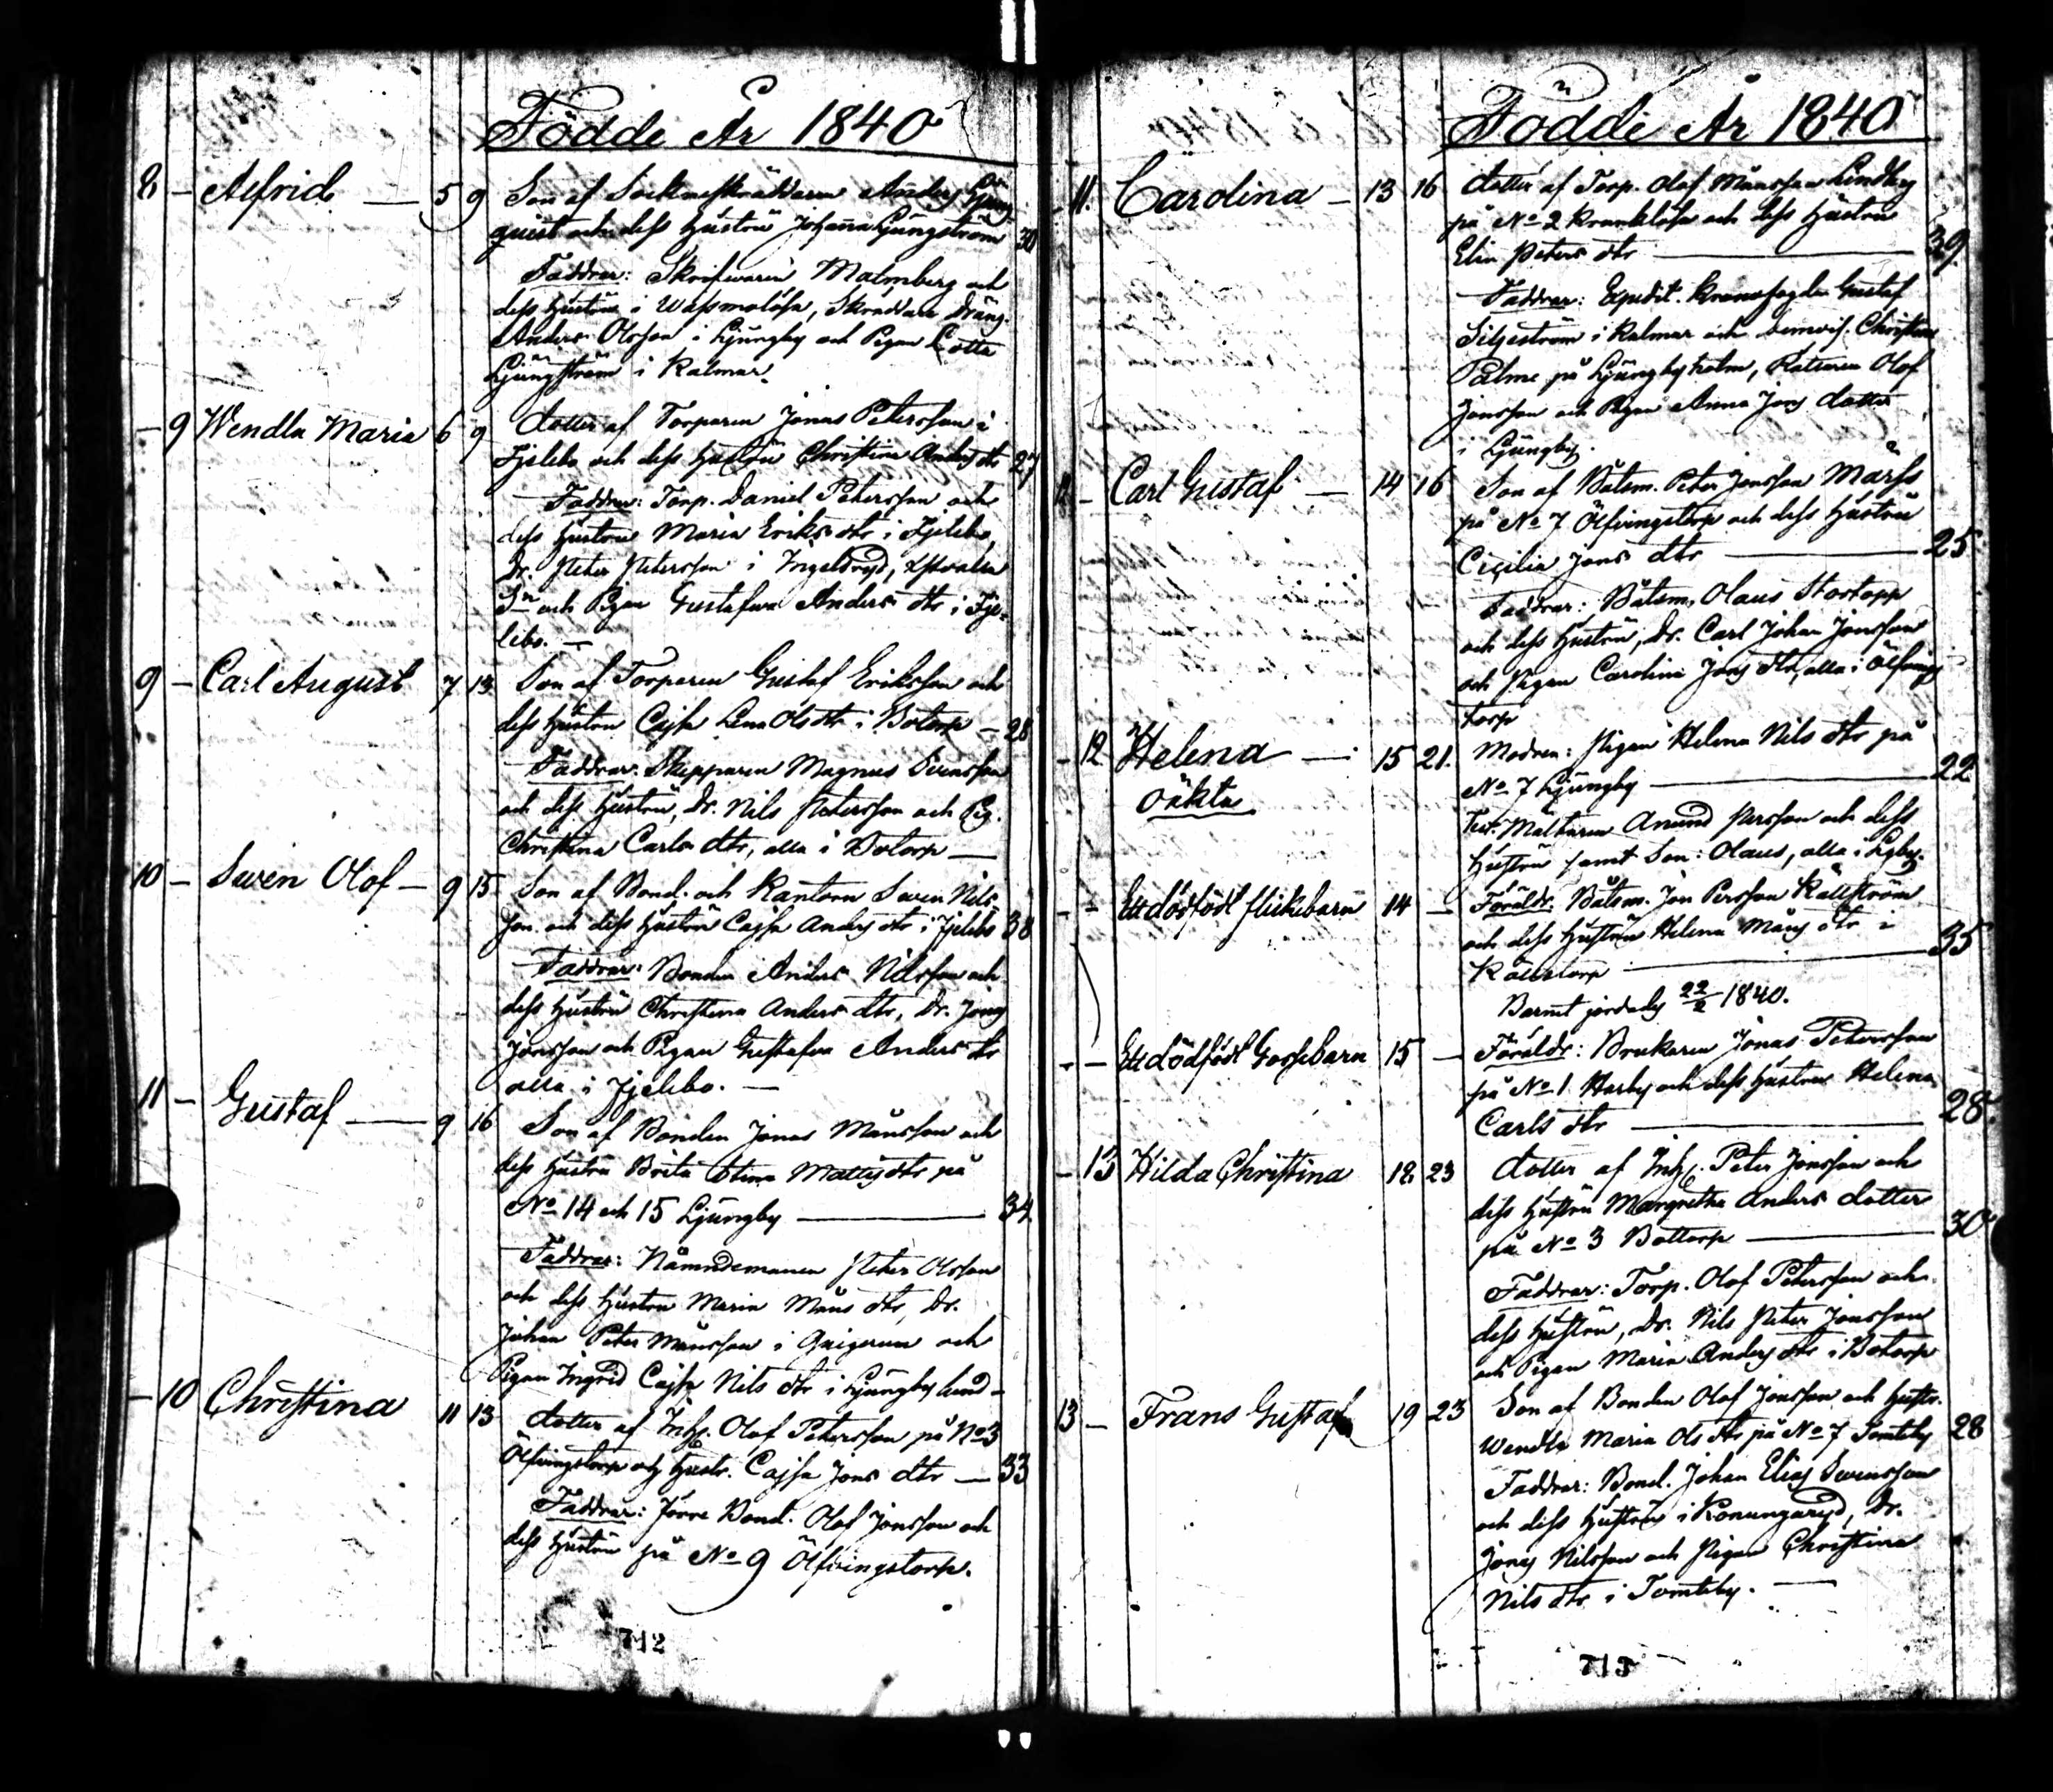 Födde År 1840
8 - Alfrid - 5 9 Son af Sockneskräddaren Anders Ljung-
quist och dess Hustru Johanna Ljungström 30
Faddrar: Skrifvaren Malmberg och
dess Hustru i Wassmolösa, Skräddare Dräng.
Anders Olsson i Ljungby och Pigan Lotta
Ljungström i Kalmar.
- 9 Wendla Maria 6 9 dotter af Torparen Jonas Petersson i
Fjelebo och dess Hustru Christina Anders dtr 27
Faddrar: Torp. Daniel Petersson och
dess Hustru Maria Eriks dtr i Fjelebo,
Dr. Peter Petersson i
Sn och Pigan Gustafva Anders dtr i Fje-
lebo. -
9 - Carl August 7 13 Son af Torparen Gustaf Eriksson och
dess Hustru Cajsa Lena Ols dtr i Botorp - 28
Faddrar: Skepparen Magnus Svensson
och dess Hustru, Dr. Nils Petersson och Pig.
Christina Carls dtr, alla i Botorp -
10 - Swen Olof - 9 15 Son af Bond. och Kantorn Swen Nils-
son och dess Hustru Cajsa Anders dtr i Fjelebo 38
Faddrar: Bonden Anders Nilsson och
dess Hustru Christina Anders dtr, Dr. Jonas
Jonsson och Pigan Gustafva Anders dtr
alla i Fjelebo. -
11 - Gustaf - 9 16 Son af Bonden Jonas Månsson och
dess Hustru Brita Stina Mattis dtr på
No 14 och 15 Ljungby - 34
Faddrar: Nämndemannen Peter Olsson
och dess Hustru Maria Måns dtr, Dr.
Johan Peter Månsson i och
Pigan Ingrid Cajsa Nils dtr i Ljungby
- 10 Christina 11 13 dotter af Inhs. Olof Petersson på No 3
Ölfvingstorp och Hustr. Cajsa Jons dtr - 33
Faddrar: Förre Bond. Olof Jonsson och
dess Hustru på No 9 Ölfvingstorp.
712
Födde År 1840
- 11. Carolina - 13 16 dotter af Torp. Olof Månsson Lindby
på No 2 Kranklösa och dess Hustru
Elin Peters dtr - 39
Faddrar: Expedit. Kronofogden Gustaf
Siljeström i Kalmar och Christina
Palme på Ljungbyholm, Rättaren Olof
Jonsson och Pigan Anna Jons dotter
i Ljungby.
12 - Carl Gustaf - 14 16 Son af Båtsm. Peter Jonsson Mårss
på No 7 Ölfvingstorp och dess Hustru
Cicilia Jons dtr - 25
Faddrar: Båtsm. Olaus Stortopp
och dess Hustru, Dr. Carl Johan Jonsson
och Pigan Carolina Jons dtr, alla i Ölfvings
torp
- 12 Helena - 15 21. Modren: Pigan Helena Nils dtr på
oäkta No 7 Ljungby - 22
Test. Mältaren Anund Persson och dess
Hustru samt Son: Olaus, alla i Lgby.
- - Ett dödfödt flickebarn 14 - Föräldr: Båtsm. Jon Persson Källström
och dess Hustru Helena Måns dtr i 35
Källstorp -
Barnet jordades 22/2 1840.
- - Ett dödfödt Gossebarn 15 - Föräldr: Brukaren Jonas Petersson
på No 1 Harby och dess Hustru Helena
Carls dtr - 28.
- 13 Hilda Christina 18 23 dotter af Inhs. Peter Jonsson och
dess Hustru Margretha Anders dotter
på No 3 Bottorp - 30
Faddrar: Torp. Olof Petersson och
dess Hustru, Dr. Nils Peter Jonsson
och Pigan Maria Anders dtr i Botorp
13 - Frans Gustaf 19 23 Son af Bonden Olof Jonsson och Hustr.
Wendla Maria Ols dtr på No 7 Tomteby 28
Faddrar: Bond. Johan Elias Swensson
och dess Hustru i Konungaryd, Dr.
Jonas Nilsson och Pigan Christina
Nils dtr i Tomteby. -
713